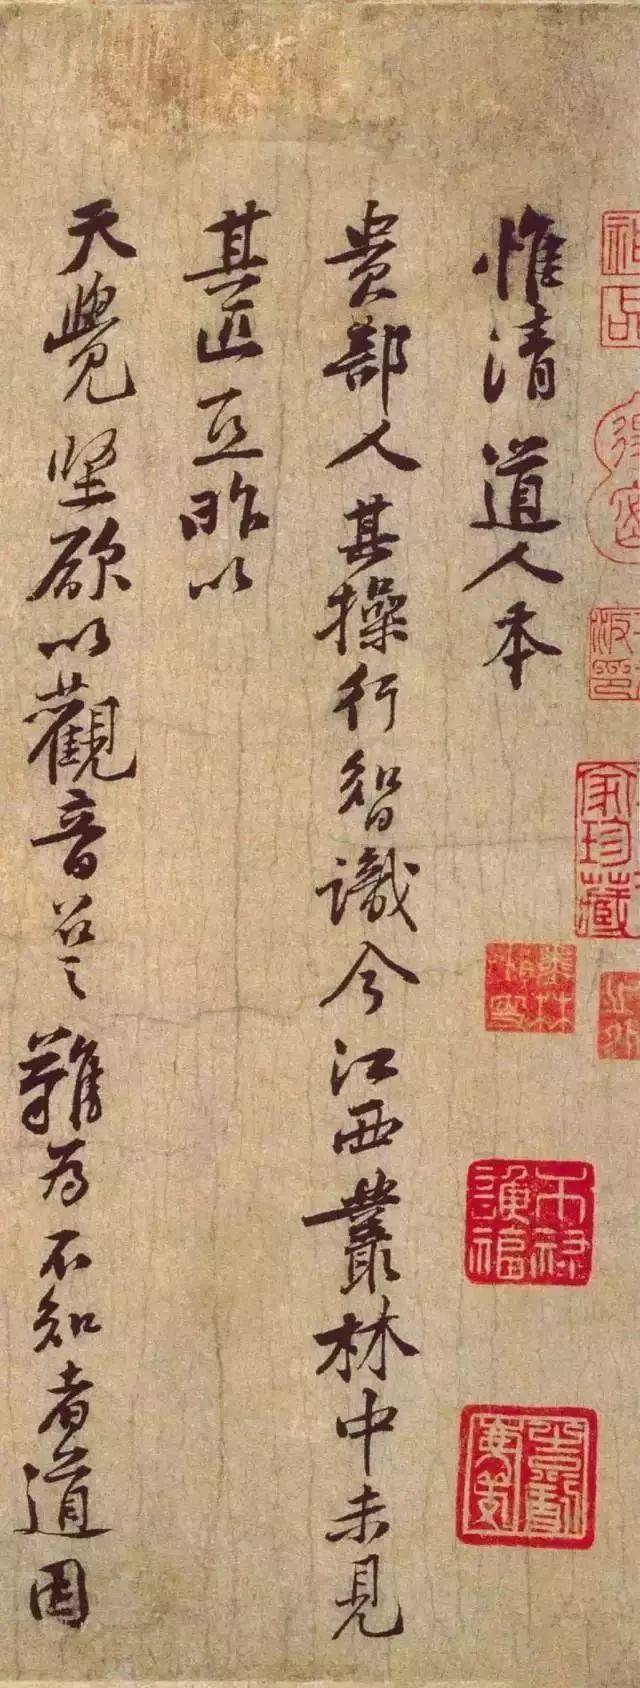 惟清道人本
貴部人其操行智識今江西叢林中未見
其匹昨以
天覺堅欲以觀音召之難為不知者道因
家珍藏